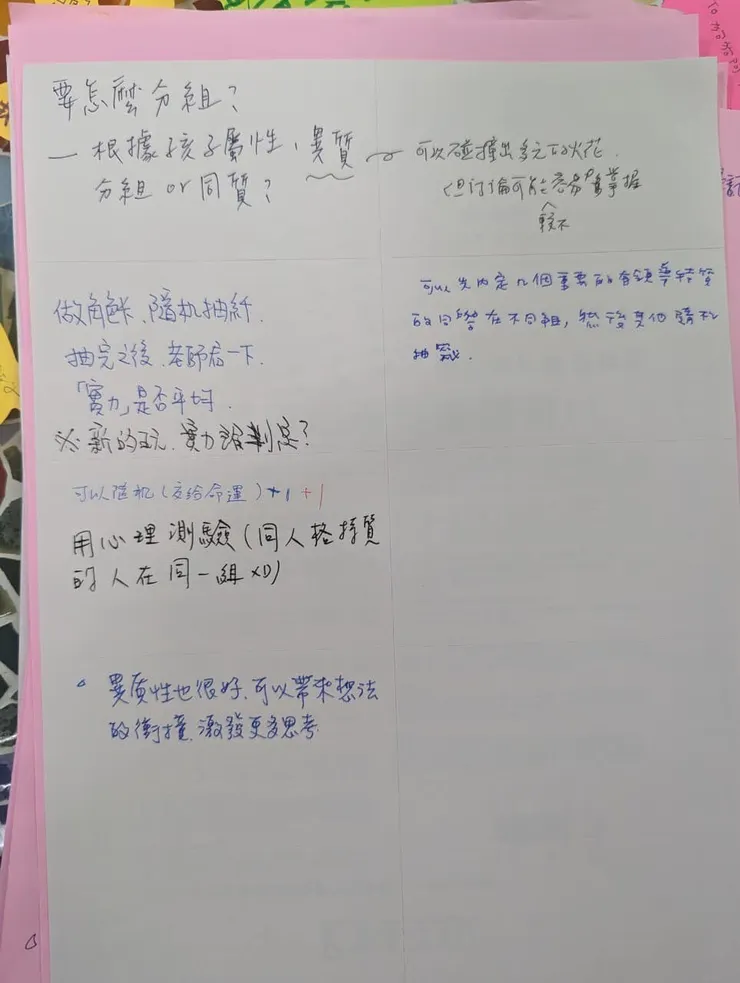 要怎麼分組？
— 根據孩子屬性、異質
分組 or 同質？
可以碰撞出多元的火花.
但討論可能 掌握
較不
做角色卡、隨机抽籤.
抽完之後、老師看一下.
「實力」是否平均.
※ 新的玩、實力 判定？
可以先內定几個重要的有領導特質
的同學在不同組，然後其他隨机
抽籤.
可以隨机（交給命運）+1 +1
用心理測驗（同人格特質
的人在同一組XD）
異質性也很好、可以帶來想法
的衝撞、激發更多思考.